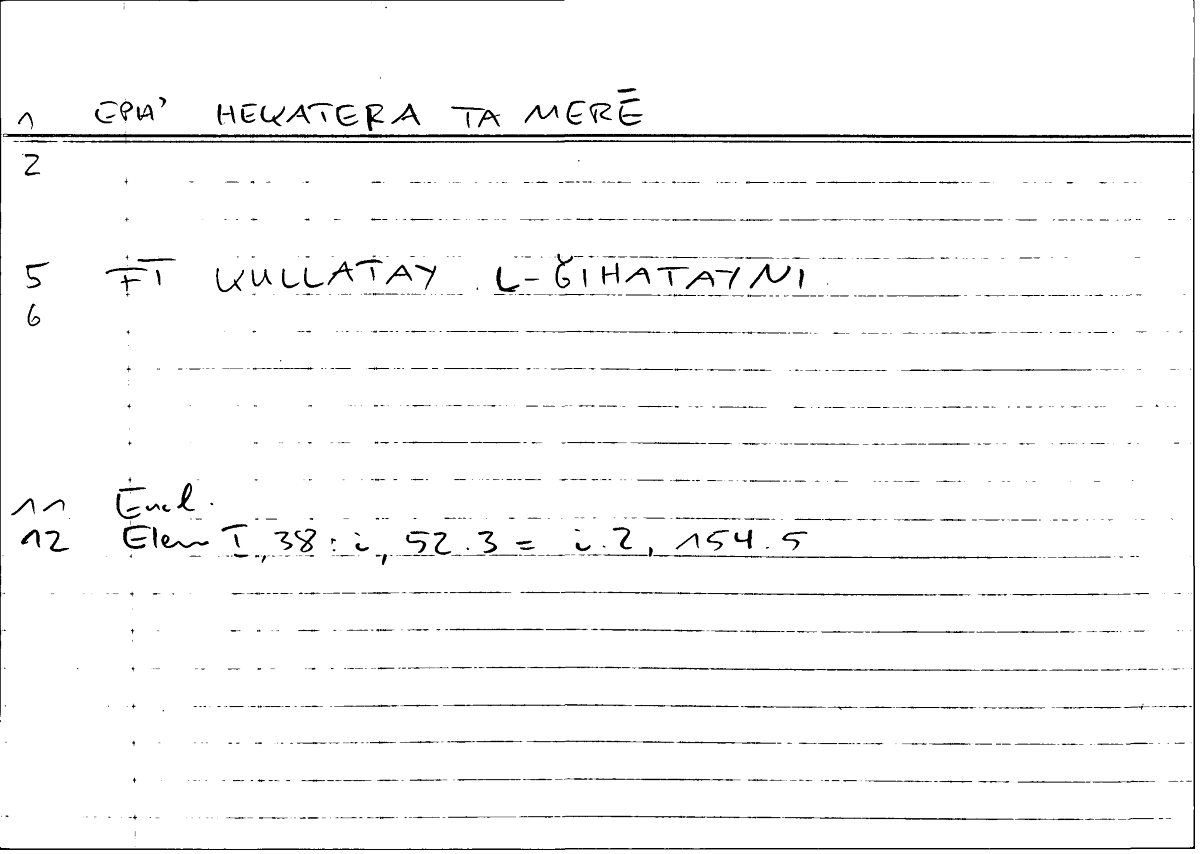 1 EPH' HEKATERA TA MERĒ
2
5 FĪ KULLATAY L-ǦIHATAYNI
6
11 Eucl.
12 Elem I, 38 : i, 52.3 = i.2, 154.5